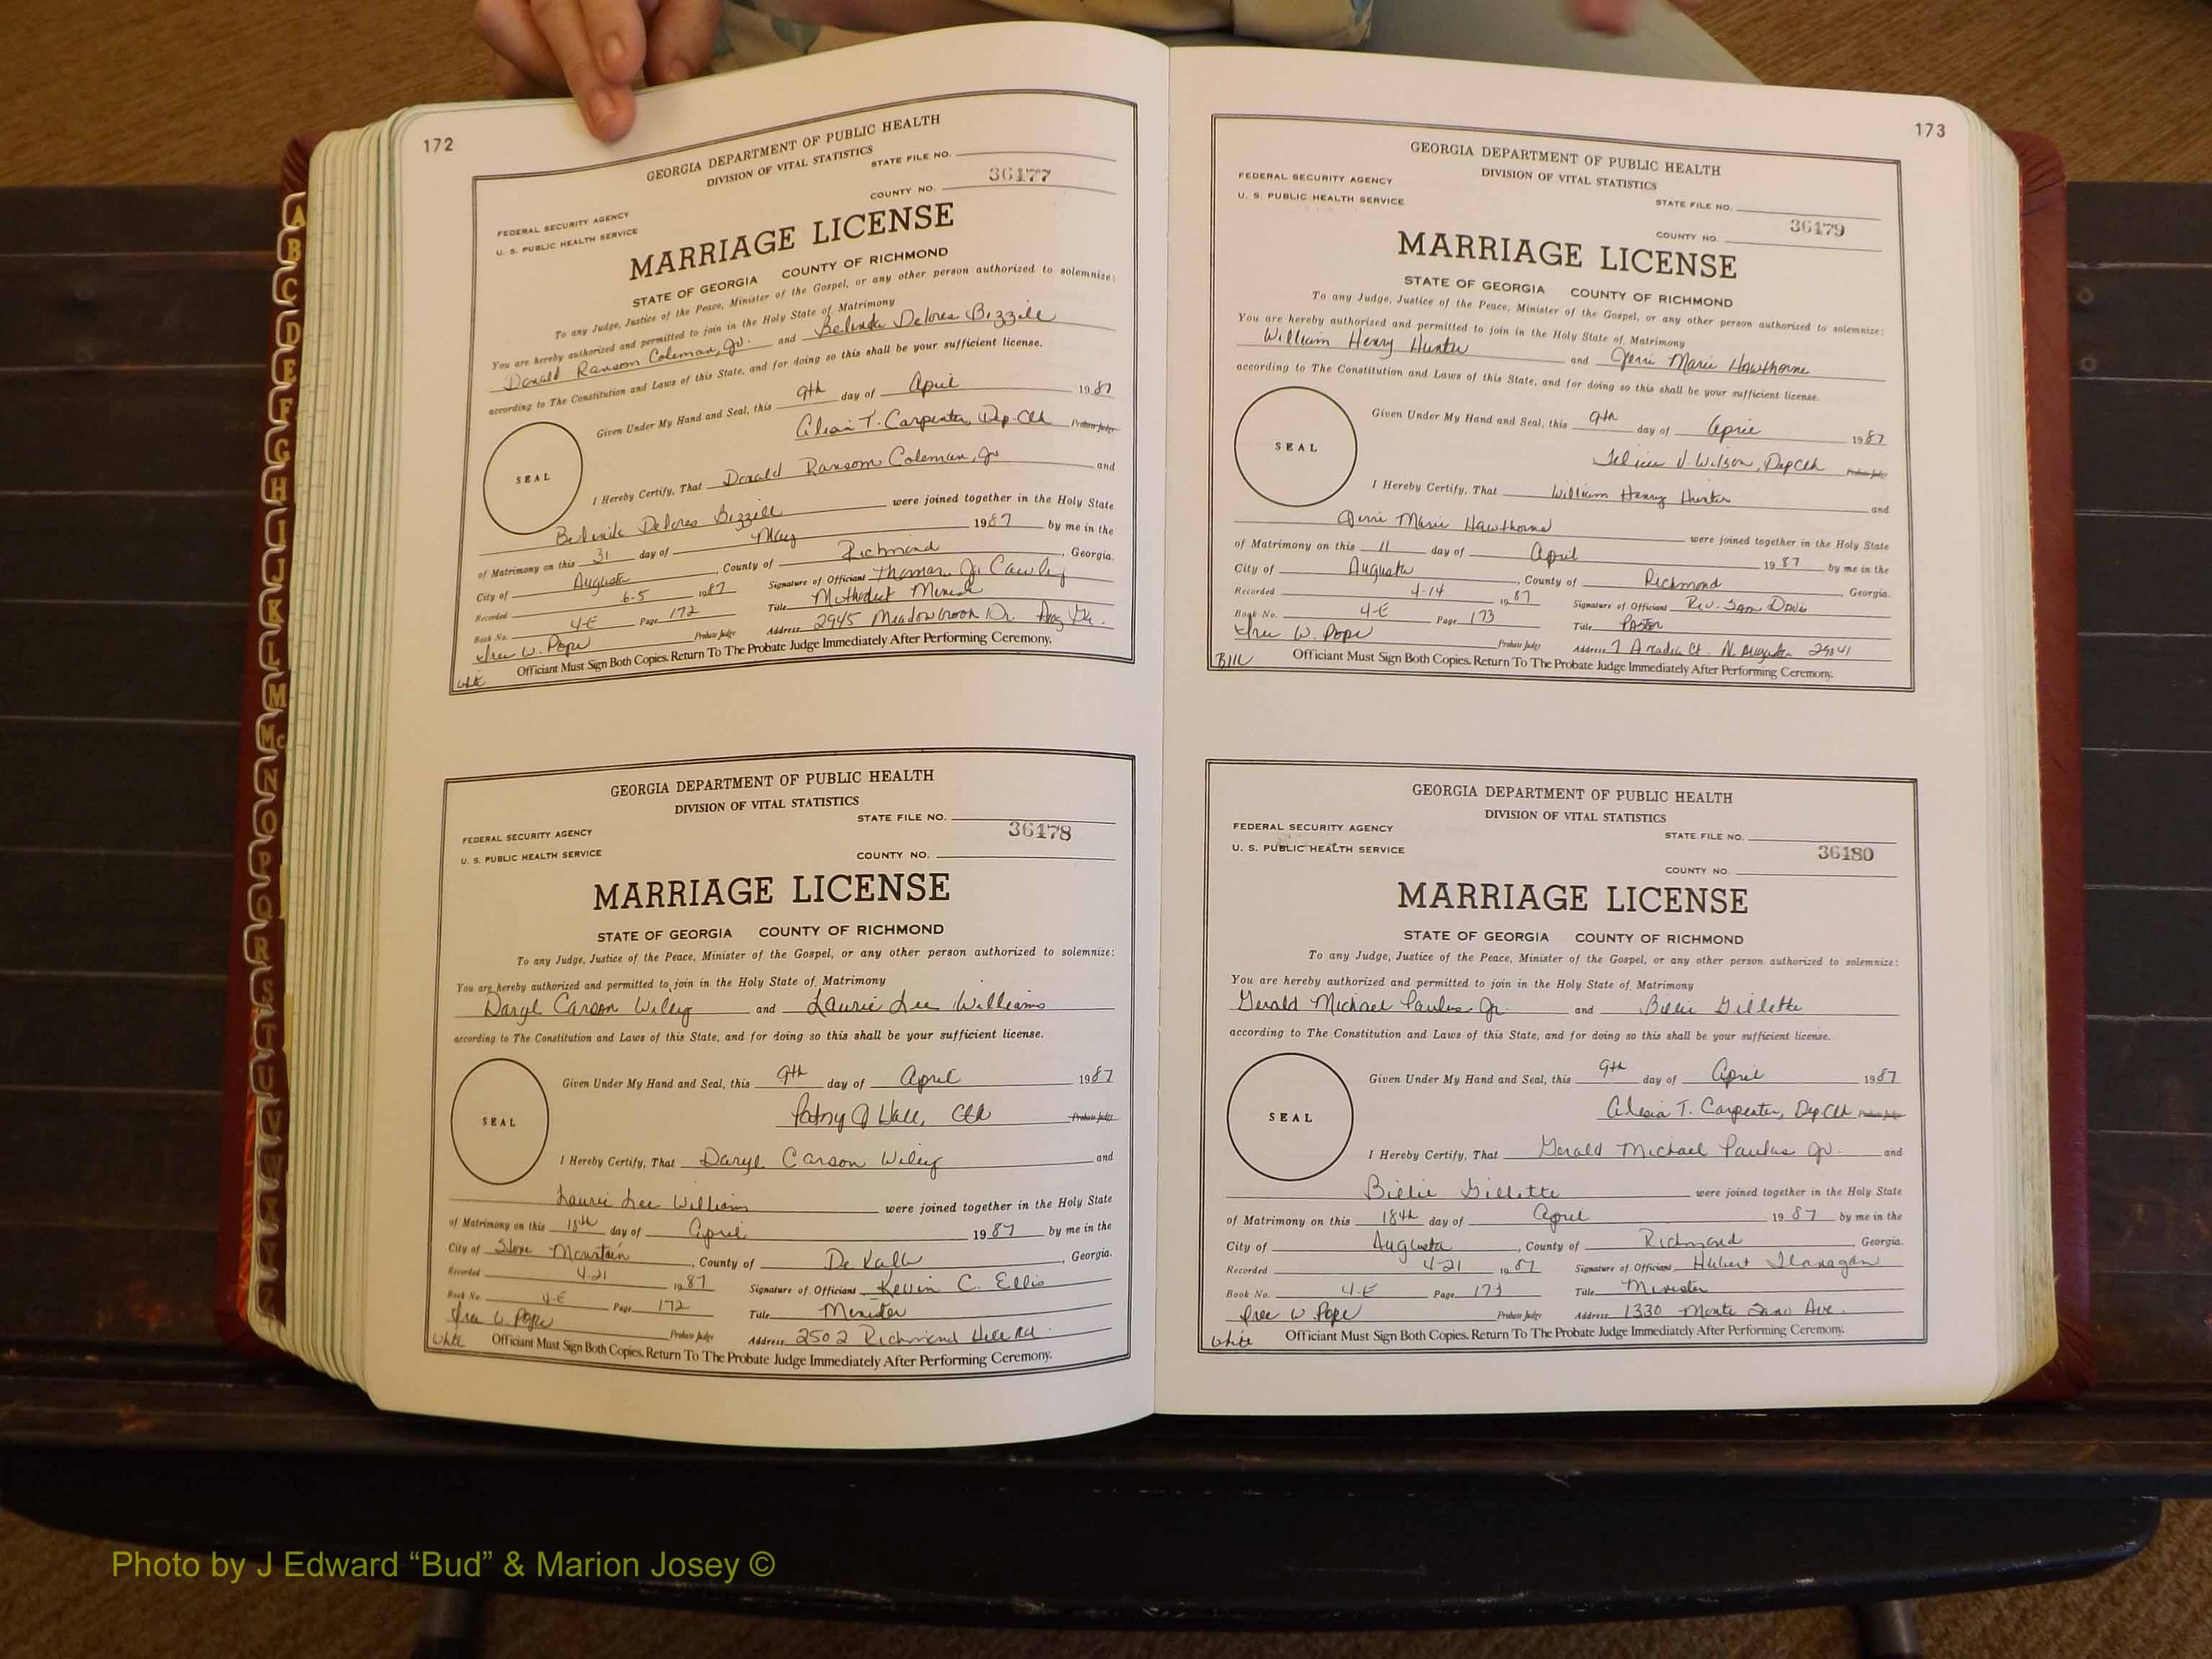 172
GEORGIA DEPARTMENT OF PUBLIC HEALTH
DIVISION OF VITAL STATISTICS
STATE FILE NO.
36177
FEDERAL SECURITY AGENCY
COUNTY NO.
U. S. PUBLIC HEALTH SERVICE
MARRIAGE LICENSE
STATE OF GEORGIA COUNTY OF RICHMOND
To any Judge, Justice of the Peace, Minister of the Gospel, or any other person authorized to solemnize:
You are hereby authorized and permitted to join in the Holy State of Matrimony
Donald Ransom Coleman, Jr. and Belinda Delores Bizzile
according to The Constitution and Laws of this State, and for doing so this shall be your sufficient license.
Given Under My Hand and Seal, this 9th day of April 1987
Alesia T. Carpenter, Dep. Clk Probate Judge
SEAL
I Hereby Certify, That Donald Ransom Coleman, Jr and
Belinda Delores Bizzile were joined together in the Holy State
of Matrimony on this 31 day of May 1987 by me in the
City of Augusta, County of Richmond, Georgia.
Recorded 6-5 1987 Signature of Officiant Thomas J. Cawley
Book No. 4-E Page 172 Title Methodist
W. Pope Probate Judge Address 2945 Meadowbrook Dr. Aug Ga.
White Officiant Must Sign Both Copies. Return To The Probate Judge Immediately After Performing Ceremony.
GEORGIA DEPARTMENT OF PUBLIC HEALTH
DIVISION OF VITAL STATISTICS
STATE FILE NO.
36178
FEDERAL SECURITY AGENCY
U. S. PUBLIC HEALTH SERVICE
COUNTY NO.
MARRIAGE LICENSE
STATE OF GEORGIA COUNTY OF RICHMOND
To any Judge, Justice of the Peace, Minister of the Gospel, or any other person authorized to solemnize:
You are hereby authorized and permitted to join in the Holy State of Matrimony
Daryl Carson Wiley and Laurie Lee Williams
according to The Constitution and Laws of this State, and for doing so this shall be your sufficient license.
Given Under My Hand and Seal, this 9th day of April 1987
Hall, Clk Probate Judge
SEAL
I Hereby Certify, That Daryl Carson Wiley and
Laurie Lee Williams were joined together in the Holy State
of Matrimony on this 18th day of April 1987 by me in the
City of Stone Mountain, County of De Kalb, Georgia.
Recorded 4-21 1987 Signature of Officiant Kevin C. Ellis
Book No. 4-E Page 172 Title Minister
W. Pope Probate Judge Address 2502 Richmond Hill Rd.
White Officiant Must Sign Both Copies. Return To The Probate Judge Immediately After Performing Ceremony.
173
GEORGIA DEPARTMENT OF PUBLIC HEALTH
DIVISION OF VITAL STATISTICS
FEDERAL SECURITY AGENCY
U. S. PUBLIC HEALTH SERVICE
STATE FILE NO.
36179
COUNTY NO.
MARRIAGE LICENSE
STATE OF GEORGIA COUNTY OF RICHMOND
To any Judge, Justice of the Peace, Minister of the Gospel, or any other person authorized to solemnize:
You are hereby authorized and permitted to join in the Holy State of Matrimony
William Henry Hunter and Jerri Marie Hawthorne
according to The Constitution and Laws of this State, and for doing so this shall be your sufficient license.
Given Under My Hand and Seal, this 9th day of April 1987
J. Wilson, Dep Clk Probate Judge
SEAL
I Hereby Certify, That William Henry Hunter and
Jerri Marie Hawthorne were joined together in the Holy State
of Matrimony on this 11 day of April 1987 by me in the
City of Augusta, County of Richmond, Georgia.
Recorded 4-14 1987 Signature of Officiant Rev. Sam Davis
Book No. 4-E Page 173 Title Pastor
W. Pope Probate Judge Address 7 Ct. N. Augusta 29841
Officiant Must Sign Both Copies. Return To The Probate Judge Immediately After Performing Ceremony.
GEORGIA DEPARTMENT OF PUBLIC HEALTH
DIVISION OF VITAL STATISTICS
FEDERAL SECURITY AGENCY
STATE FILE NO.
U. S. PUBLIC HEALTH SERVICE
36180
COUNTY NO.
MARRIAGE LICENSE
STATE OF GEORGIA COUNTY OF RICHMOND
To any Judge, Justice of the Peace, Minister of the Gospel, or any other person authorized to solemnize:
You are hereby authorized and permitted to join in the Holy State of Matrimony
Gerald Michael Paulus Jr. and Billie Gillette
according to The Constitution and Laws of this State, and for doing so this shall be your sufficient license.
Given Under My Hand and Seal, this 9th day of April 1987
Alesia T. Carpenter, Dep Clk Probate Judge
SEAL
I Hereby Certify, That Gerald Michael Paulus Jr. and
Billie Gillette were joined together in the Holy State
of Matrimony on this 18th day of April 1987 by me in the
City of Augusta, County of Richmond, Georgia.
Recorded 4-21 1987 Signature of Officiant Hubert Flanagan
Book No. 4-E Page 173 Title Minister
W. Pope Probate Judge Address 1330 Monte Sano Ave.
White Officiant Must Sign Both Copies. Return To The Probate Judge Immediately After Performing Ceremony.
A
B
C
D
E
F
G
H
I
J
K
L
M
Mc
N
O
P
Q
R
S
T
U
V
W
Photo by J Edward “Bud” & Marion Josey ©